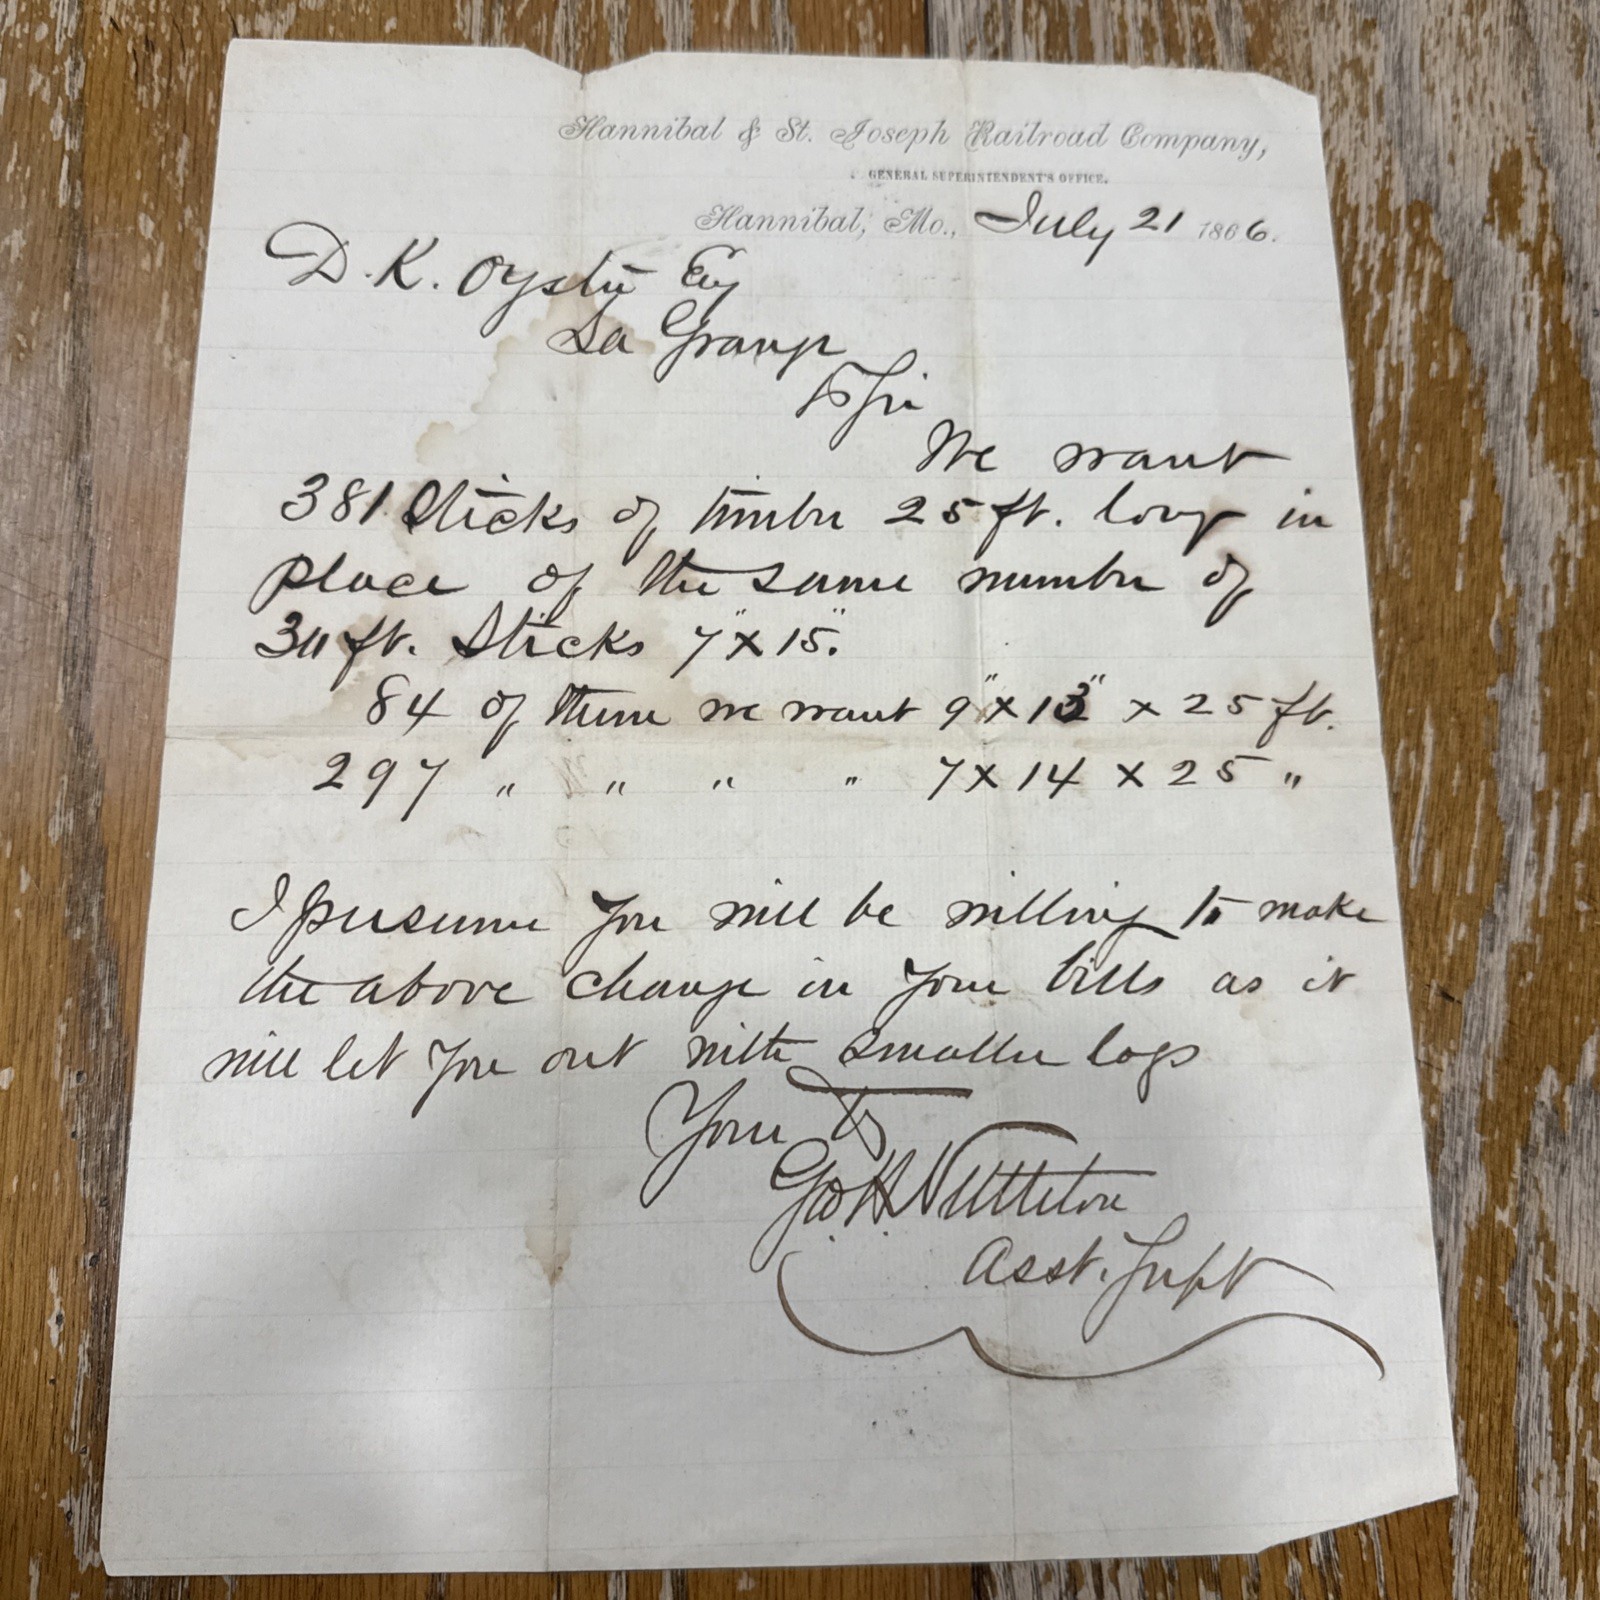 Hannibal & St. Joseph Railroad Company,
GENERAL SUPERINTENDENT'S OFFICE.
Hannibal, Mo., July 21 1866.
D. K. Oyster Esq
La Grange
D Sir
We want
381 Sticks of timber 25 ft. long in
place of the same number of
30 ft. Sticks 7" x 15".
84 of them we want 9" x 13" x 25 ft.
297 " " " " 7 x 14 x 25 "
I presume you will be willing to make
the above change in your bills as it
will let you out with smaller logs
Your
Geo H. Nettleton
Asst. Supt